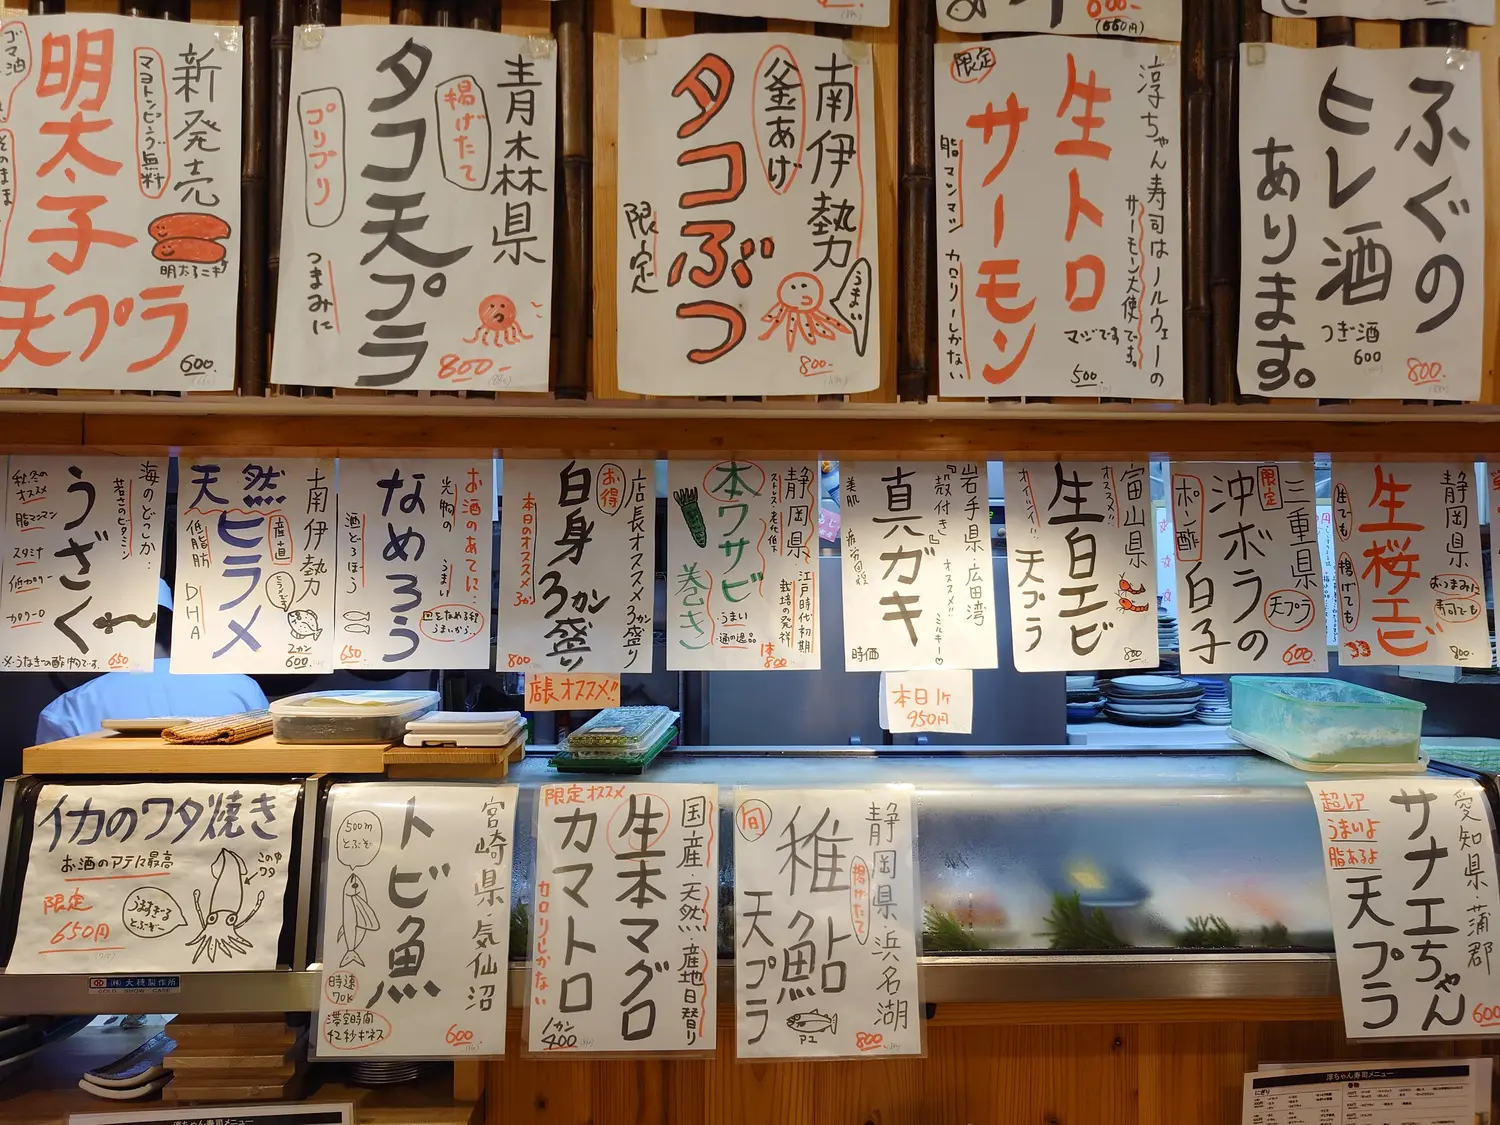 新発売
マヨトッピング無料
明太子
天プラ
600.
青森県
揚げたて
タコ天プラ
プリプリ
つまみに
800-
南伊勢
釜あげ
タコぶつ
限定
うまい
800-
淳ちゃん寿司はノルウェーの
サーモン大使です。
マジです
生トロ
サーモン
限定
脂マンマン カロリーしかない
500.
ふぐの
ヒレ酒
あります。
つぎ酒
600
800.
海のどっか…
若さのビタミン
うざく
秋、冬の
オススメ
脂マンマン
スタミナ
低カロリー
※うなぎの酢物です。
650
南伊勢
産直
天然
ヒラメ
低脂肪
DHA
2カン
600.
お酒のあてに…
光物の
うまい
なめろう
酒どろぼう
皿をなめる程
うまいから。
650
店長オススメ3カン盛り
お得
白身3カン盛り
本日のオススメ
3カン
800
店長オススメ!!
静岡県
江戸時代初期
栽培の発祥
本ワサビ
巻き
うまい
通の逸品
1本
800
岩手県・広田湾
『殻付き』
オススメ!!
ミルキー
真ガキ
美肌
疲労回復
時価
本日1ケ
950円
富山県
オススメ!!
生白エビ
天プラ
オイシイ!
800
三重県
天プラ
限定
沖ボラの
白子
ポン酢
600
静岡県
おつまみに
寿司でも
生桜エビ
生でも
揚げても
800.
イカのワタ焼き
お酒のアテに最高
限定
650円
うますぎる
とぶぞー
この中
ワタ
宮崎県・気仙沼
トビ魚
500m
とぶぞ
時速
70K
滞空時間
42秒ギネス
600
限定オススメ
国産・天然・産地日替り
生本マグロ
カマトロ
カロリーしかない
1カン
400
静岡県 浜名湖
揚げたて
旬
稚鮎
天プラ
800
愛知県・蒲郡
サナエちゃん
天プラ
超レア
うまいよ
脂あるよ
600
大穂製作所
COLD SHOW CASE
淳ちゃん寿司メニュー
淳ちゃん寿司メニュー